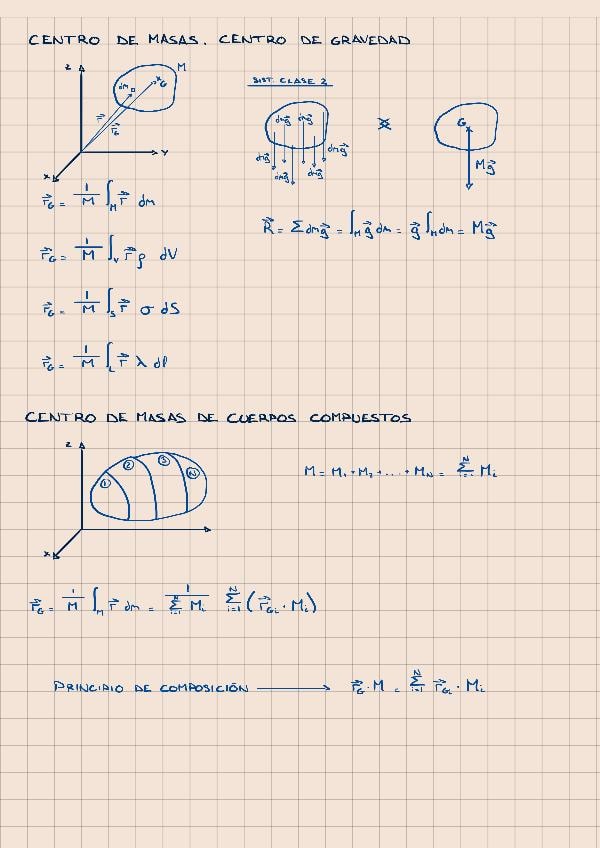 CENTRO DE MASAS. CENTRO DE GRAVEDAD
z
M
dm
G
r⃗
r⃗G
y
x
SIST. CLASE 2
dmg⃗ dmg⃗
dmg⃗ dmg⃗
dmg⃗ dmg⃗
G
Mg⃗
r⃗G = 1/M ∫M r⃗ dm
R⃗ = Σ dmg⃗ = ∫M g⃗ dm = g⃗ ∫M dm = Mg⃗
r⃗G = 1/M ∫V r⃗ ρ dV
r⃗G = 1/M ∫S r⃗ σ dS
r⃗G = 1/M ∫L r⃗ λ dl
CENTRO DE MASAS DE CUERPOS COMPUESTOS
z
1 2 3 N
x
M = M1 + M2 + ... + MN = Σ(i=1)^N Mi
r⃗G = 1/M ∫M r⃗ dm = 1/(Σ(i=1)^N Mi) Σ(i=1)^N (r⃗Gi · Mi)
PRINCIPIO DE COMPOSICIÓN → r⃗G · M = Σ(i=1)^N r⃗Gi · Mi